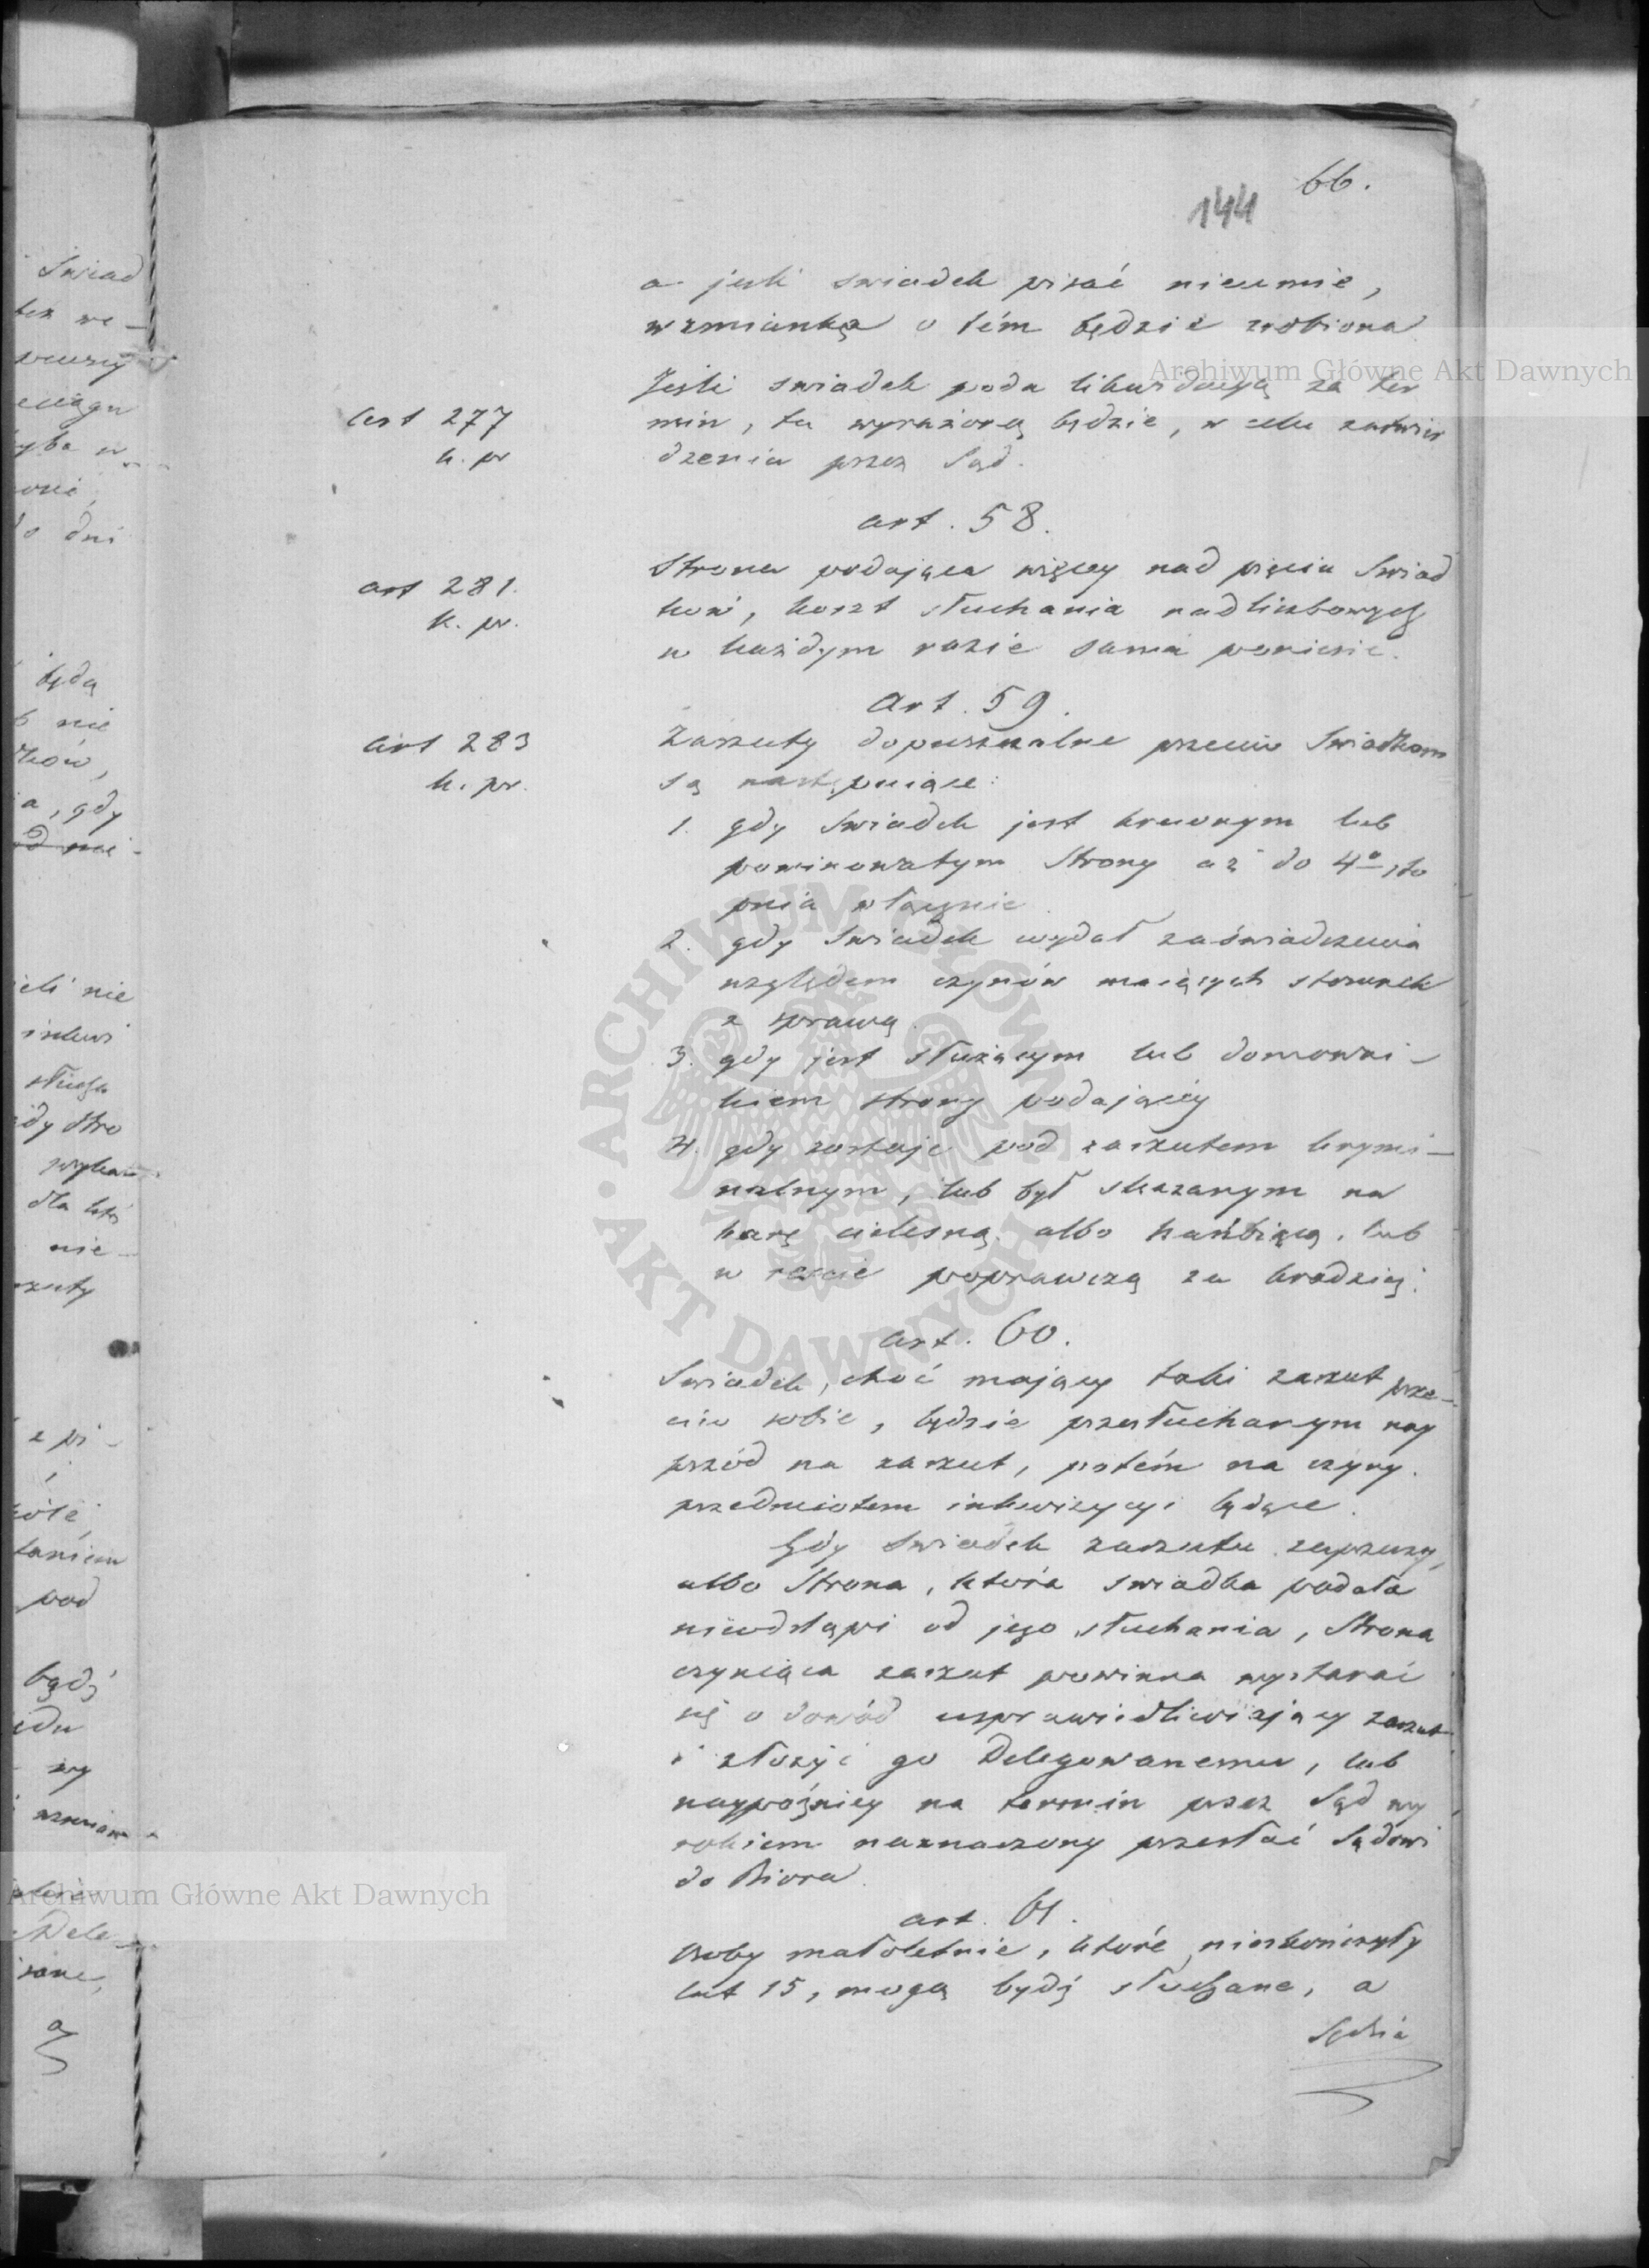 66.
144
a jeśli swiadek pisać nieumie,
wzmianka o tém będzie zrobiona
Jeśli swiadek poda likwidacyą za ter
min, ta wyrażoną będzie, w celu zatwier
dzenia przez Sąd.
art 277
k. pr
art. 58.
Strona podająca więcey nad pięciu Swiad
ków, koszt słuchania nadliczbowych
w każdym razie sama poniesie.
art 281.
k. pr.
Art. 59.
Zarzuty dopuszczalne przeciw Swiadkom
są następuiące:
art 283
k. pr.
1. gdy Swiadek jest krewnym lub
powinowatym Strony aż do 4o sto
pnia włącznie
2. gdy Swiadek wydał zaświadczenia
względem czynów maiących stosunek
z sprawą.
3. gdy jest służącym lub domowni-
kiem strony podającéy
4. gdy zostaje pod zarzutem krymi-
nalnym, lub był skazanym na
karę cielesną albo hańbiącą, lub
w reście poprawczą za kradzież.
art. 60.
Swiadek, choć mający taki zarzut prze-
ciw sobie, będzie przesłuchanym nay
przód na zarzut, potém na czyny
przedmiotem inkwizycyi będące.
Gdy swiadek zarzutu zaprzeczy,
albo Strona, która swiadka podała
nieodstąpi od jego słuchania, Strona
czyniąca zarzut powinna wystarać
się o dowód usprawiedliwiający zarzut
i złożyć go Delegowanemu, lub
naypóźniey na termin przez Sąd wy
rokiem naznaczony przesłać Sądowi
do Biora.
art. 61.
Osoby małoletnie, które nieskończyły
lat 15, mogą bydź słuchane, a
Sędzia
Archiwum Główne Akt Dawnych
ARCHIWUM GŁÓWNE AKT DAWNYCH
Archiwum Główne Akt Dawnych